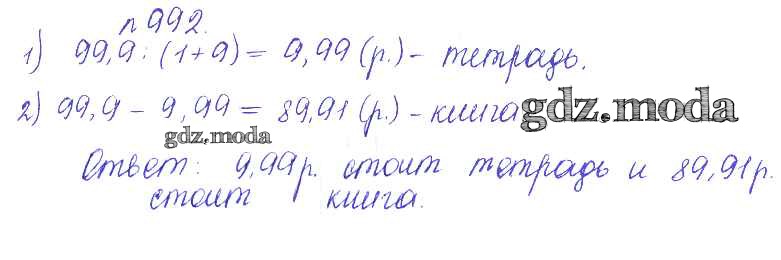 n 992.
1) 99,9 : (1+9) = 9,99 (р.) - тетрадь.
2) 99,9 - 9,99 = 89,91 (р.) - книга gdz.moda
gdz.moda
Ответ: 9,99р. стоит тетрадь и 89,91 р.
стоит книга.